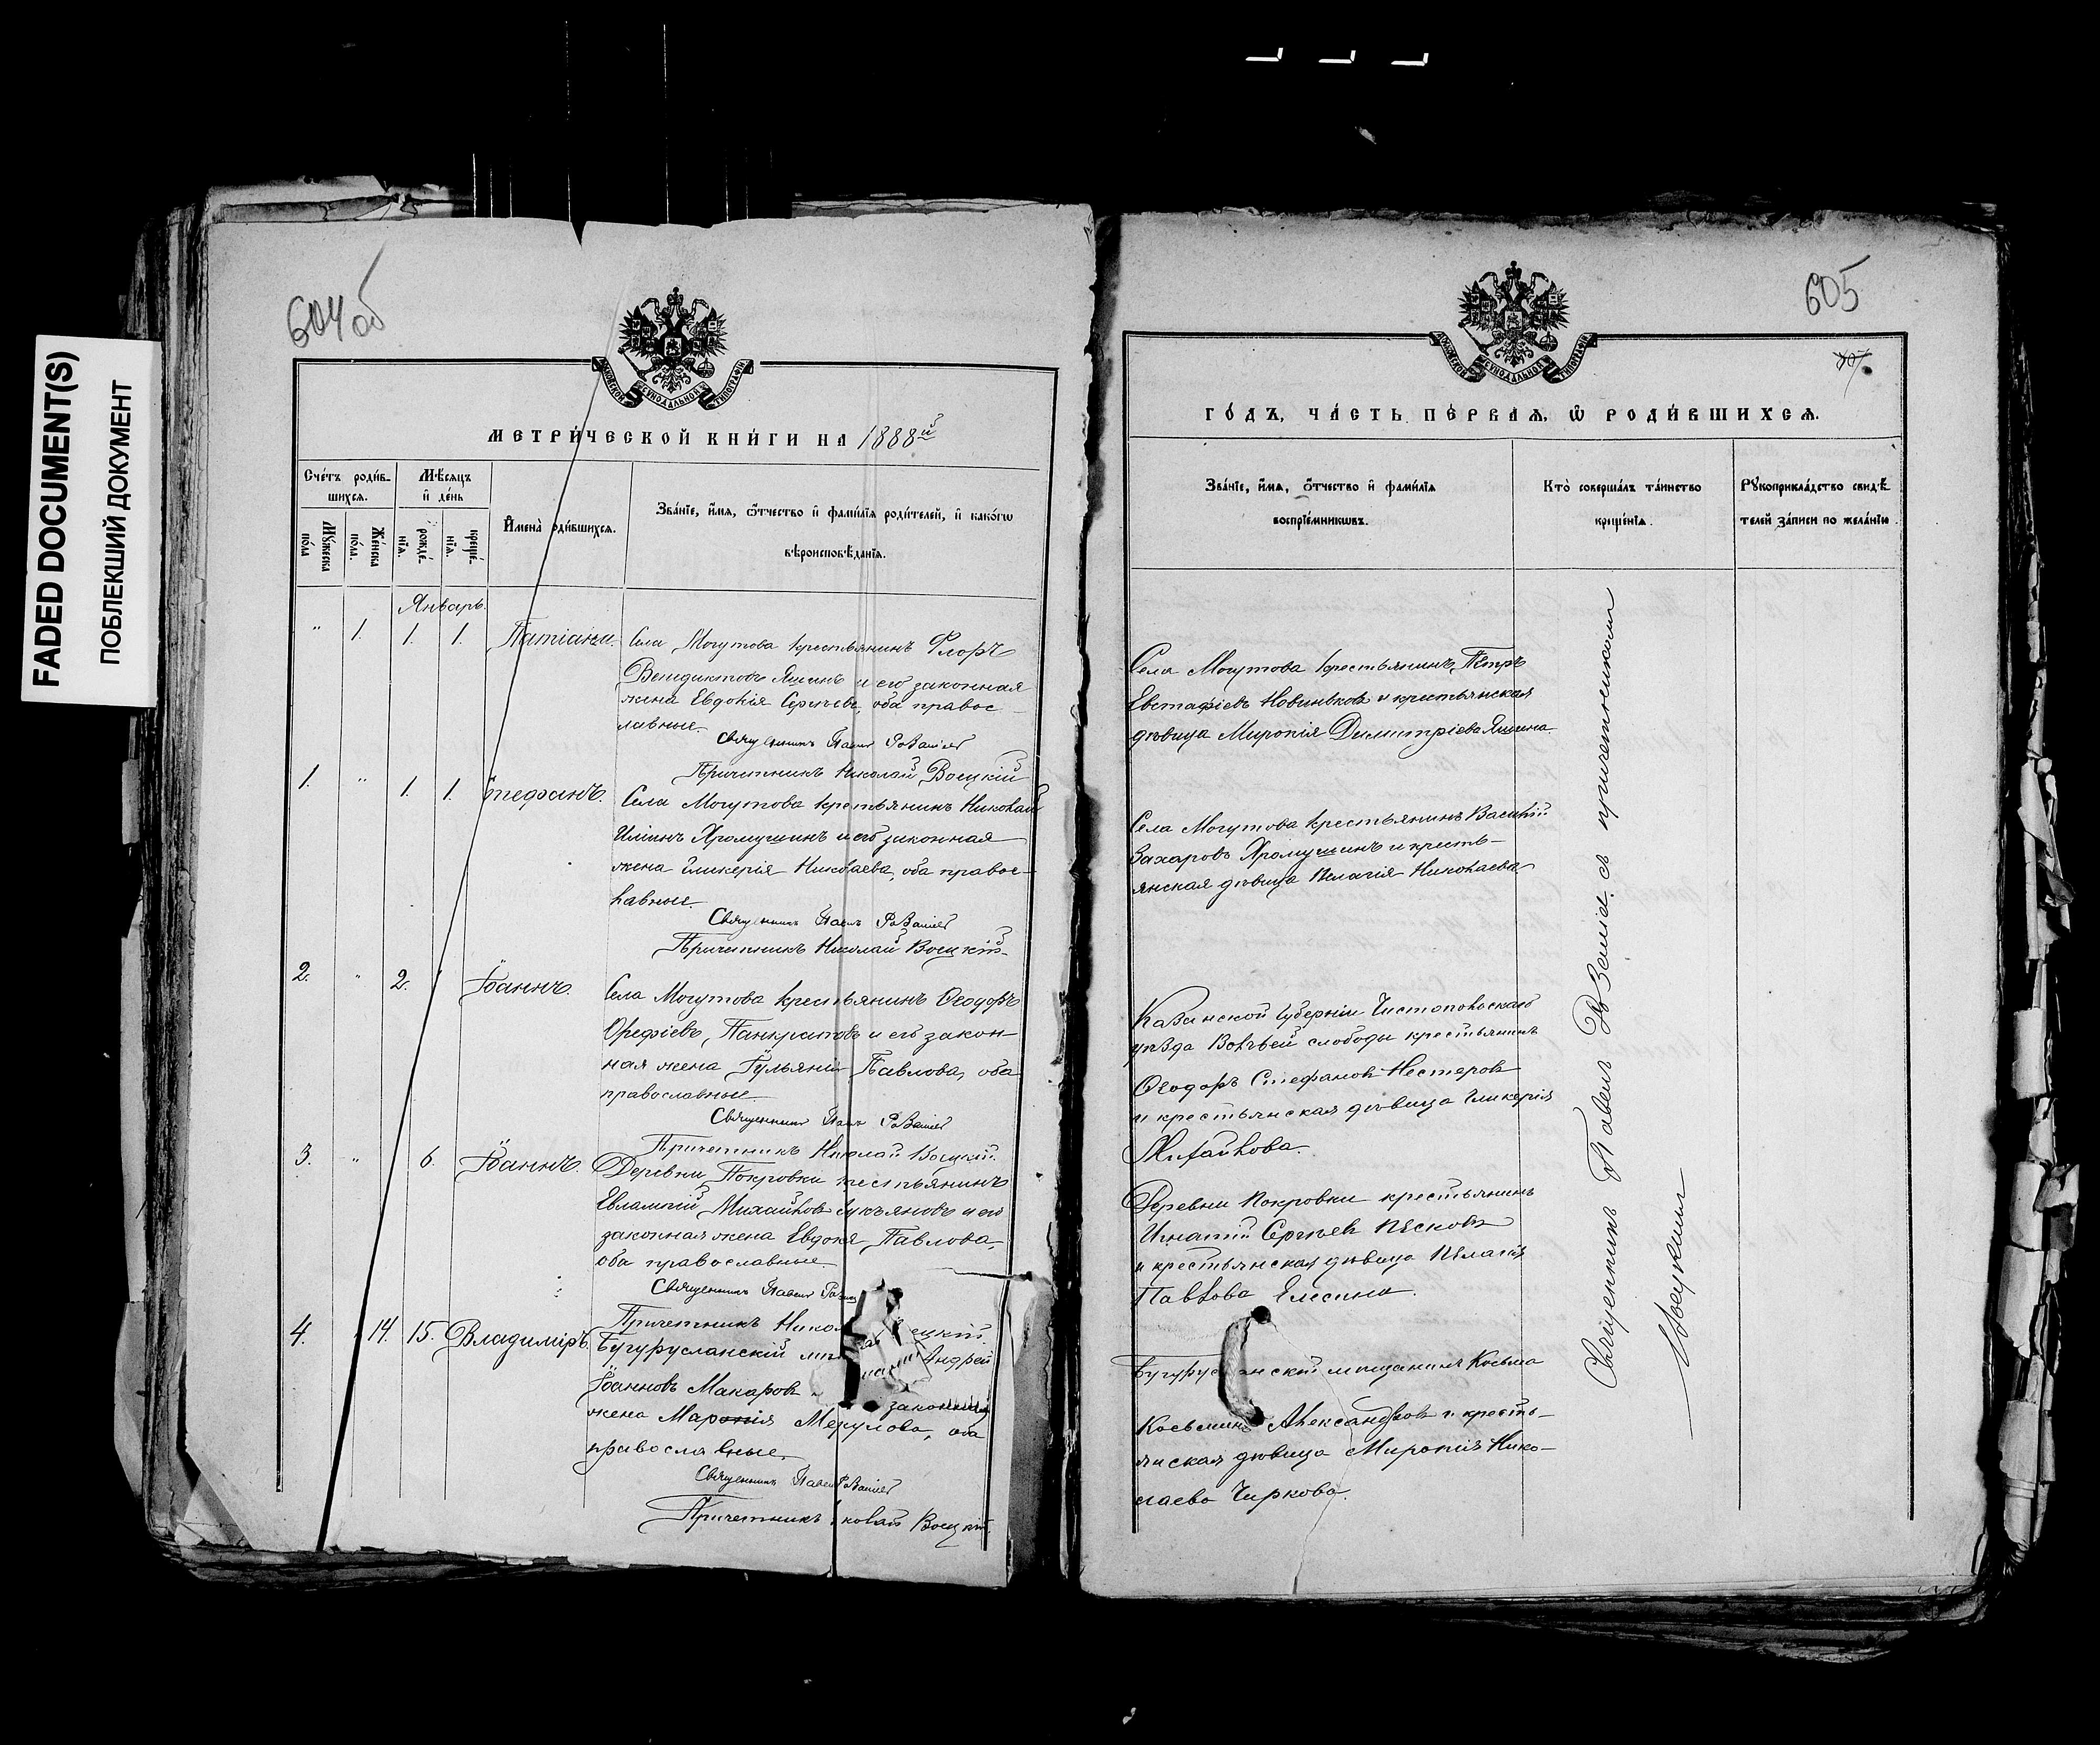 FADED DOCUMENT(S)
ПОБЛЕКШИЙ ДОКУМЕНТ
604об
МОСКОВСКОЙ СѴНОДАЛЬНОЙ ТИПОГРАФІИ
МЕТРИЧЕСКОЙ КНИГИ НА 1888й
Счетъ родив-
шихся.
Мѣсяцъ
и день
Мужеска
пола
Женска
пола.
рожде-
нія.
креще-
нія.
Имена родившихся.
Званіе, имя, отчество и фамилія родителей, и какогѡ
вѣроисповѣданія.
Январь.
" 1. 1. 1. Татіана. Села Могутова крестьянинъ Флоръ
Венидиктовъ Яшинъ и его законная
жена Евдокія Сергѣева, оба правос
лавные.
Священникъ Павелъ
Причетникъ Николай Воецкій
1. " 1. 1. Стефанъ. Села Могутова крестьянинъ Николай
Ильинъ Хромушинъ и его законная
жена Гликерія Николаева, оба правос-
лавные.
Священникъ Павелъ
Причетникъ Николай Воецкій
2. " 2. Іоаннъ. Села Могутова крестьянинъ Ѳеодоръ
Орефіевъ Панкратовъ и его закон-
ная жена Іульянія Павлова, оба
православные
Священникъ Павелъ
Причетникъ Николай Воецкій.
3. " 6. Іоаннъ. Деревни Покровки крестьянинъ
Евлампій Михайловъ Лукъяновъ и его
законная жена Евдокія Павлова,
оба православные
Священникъ Павелъ
Причетникъ Никол ецкій.
4. 14. 15. Владиміръ. Бугурусланскій Андрей
Іоанновъ Макаровъ законная
жена Маронія Меркулова, оба
православные.
Священникъ Павелъ
Причетникъ колай Воецкій.
605
МОСКОВСКОЙ СѴНОДАЛЬНОЙ ТИПОГРАФІИ
ГОДЪ, ЧАСТЬ ПЕРВАЯ, Ѡ РОДИВШИХСЯ.
Званіе, имя, отчество и фамилія
воспріемникѡвъ.
Кто совершалъ таинство
крещенія.
Рукоприкладство свидѣ-
телей записи по желанію
Села Могутова крестьянинъ Петръ
Евстафіевъ Новиковъ и крестьянская
дѣвица Миропія Димитріева Яшина
Села Могутова крестьянинъ Василій
Захаровъ Хромушинъ и кресть-
янская дѣвица Пелагія Николаева
Казанской Губерніи Чистопольскаго
уѣзда Волчьей слободы крестьянинъ
Ѳеодоръ Стефановъ Нестеровъ
и крестьянская дѣвица Гликерія
Михайлова.
Деревни Покровки крестьянинъ
Игнатій Сергѣевъ Пѣсковъ
и крестьянская дѣвица Пелагія
Павлова Елесина.
Бугурусланскій мѣщанинъ Косьма
Косьминъ Александровъ и кресть-
янская дѣвица Миропія Нико-
лаева Чиркова.
Священникъ Павелъ съ причетникомъ
Воецкимъ